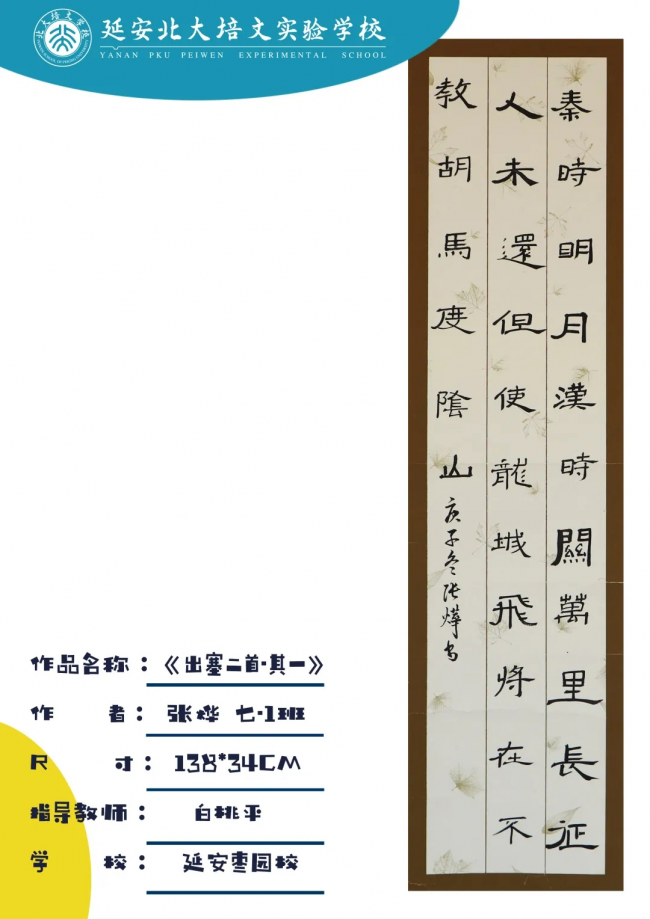 北大培文学校
延安北大培文实验学校
YANAN PKU PEIWEN EXPERIMENTAL SCHOOL
秦時明月漢時關萬里長征
人未還但使龍城飛将在不
教胡馬度陰山
庚子冬张烨书
作品名称：《出塞二首·其一》
作者：张烨 七·1班
尺寸：138*34CM
指导教师：白桃平
学校：延安枣园校